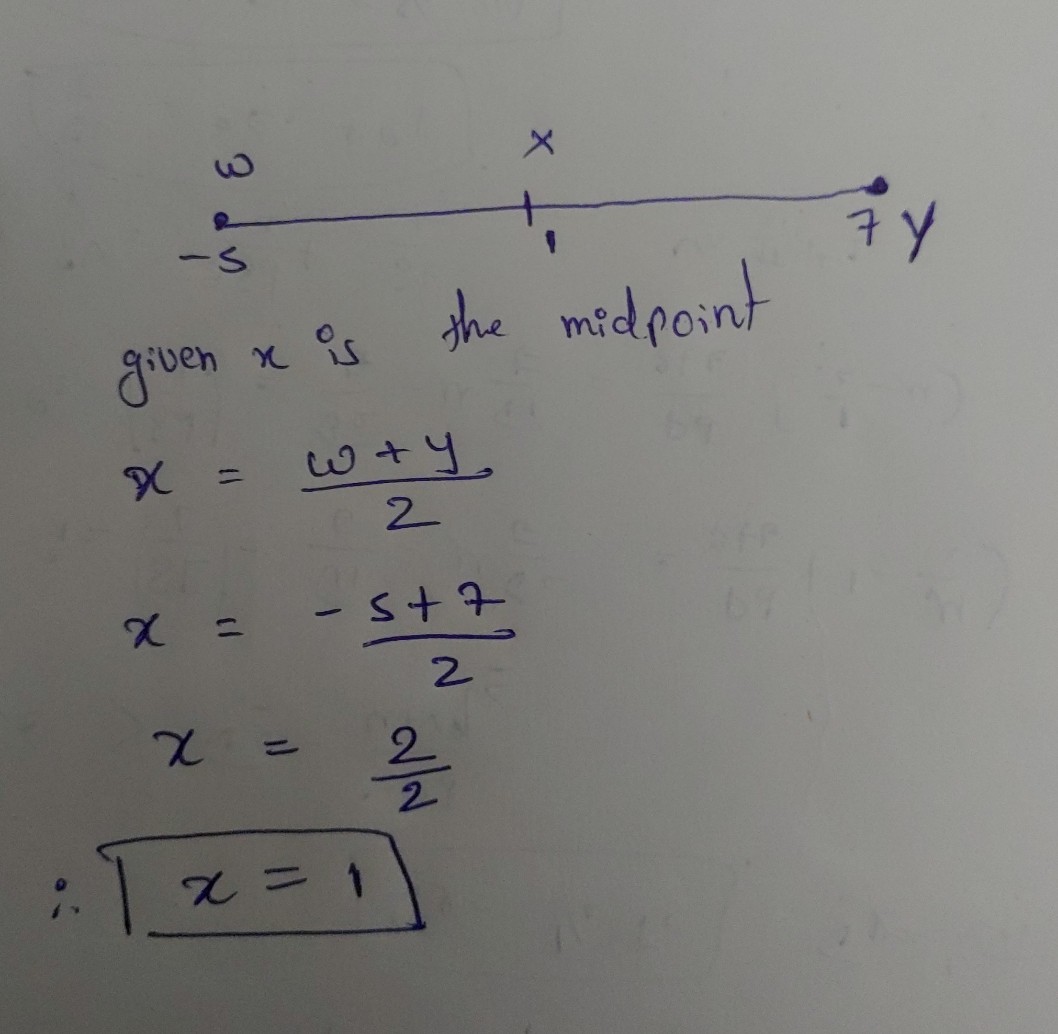 w x
-5 1 7 y
given x is the midpoint
x = w + y / 2
x = -5 + 7 / 2
x = 2 / 2
∴ x = 1